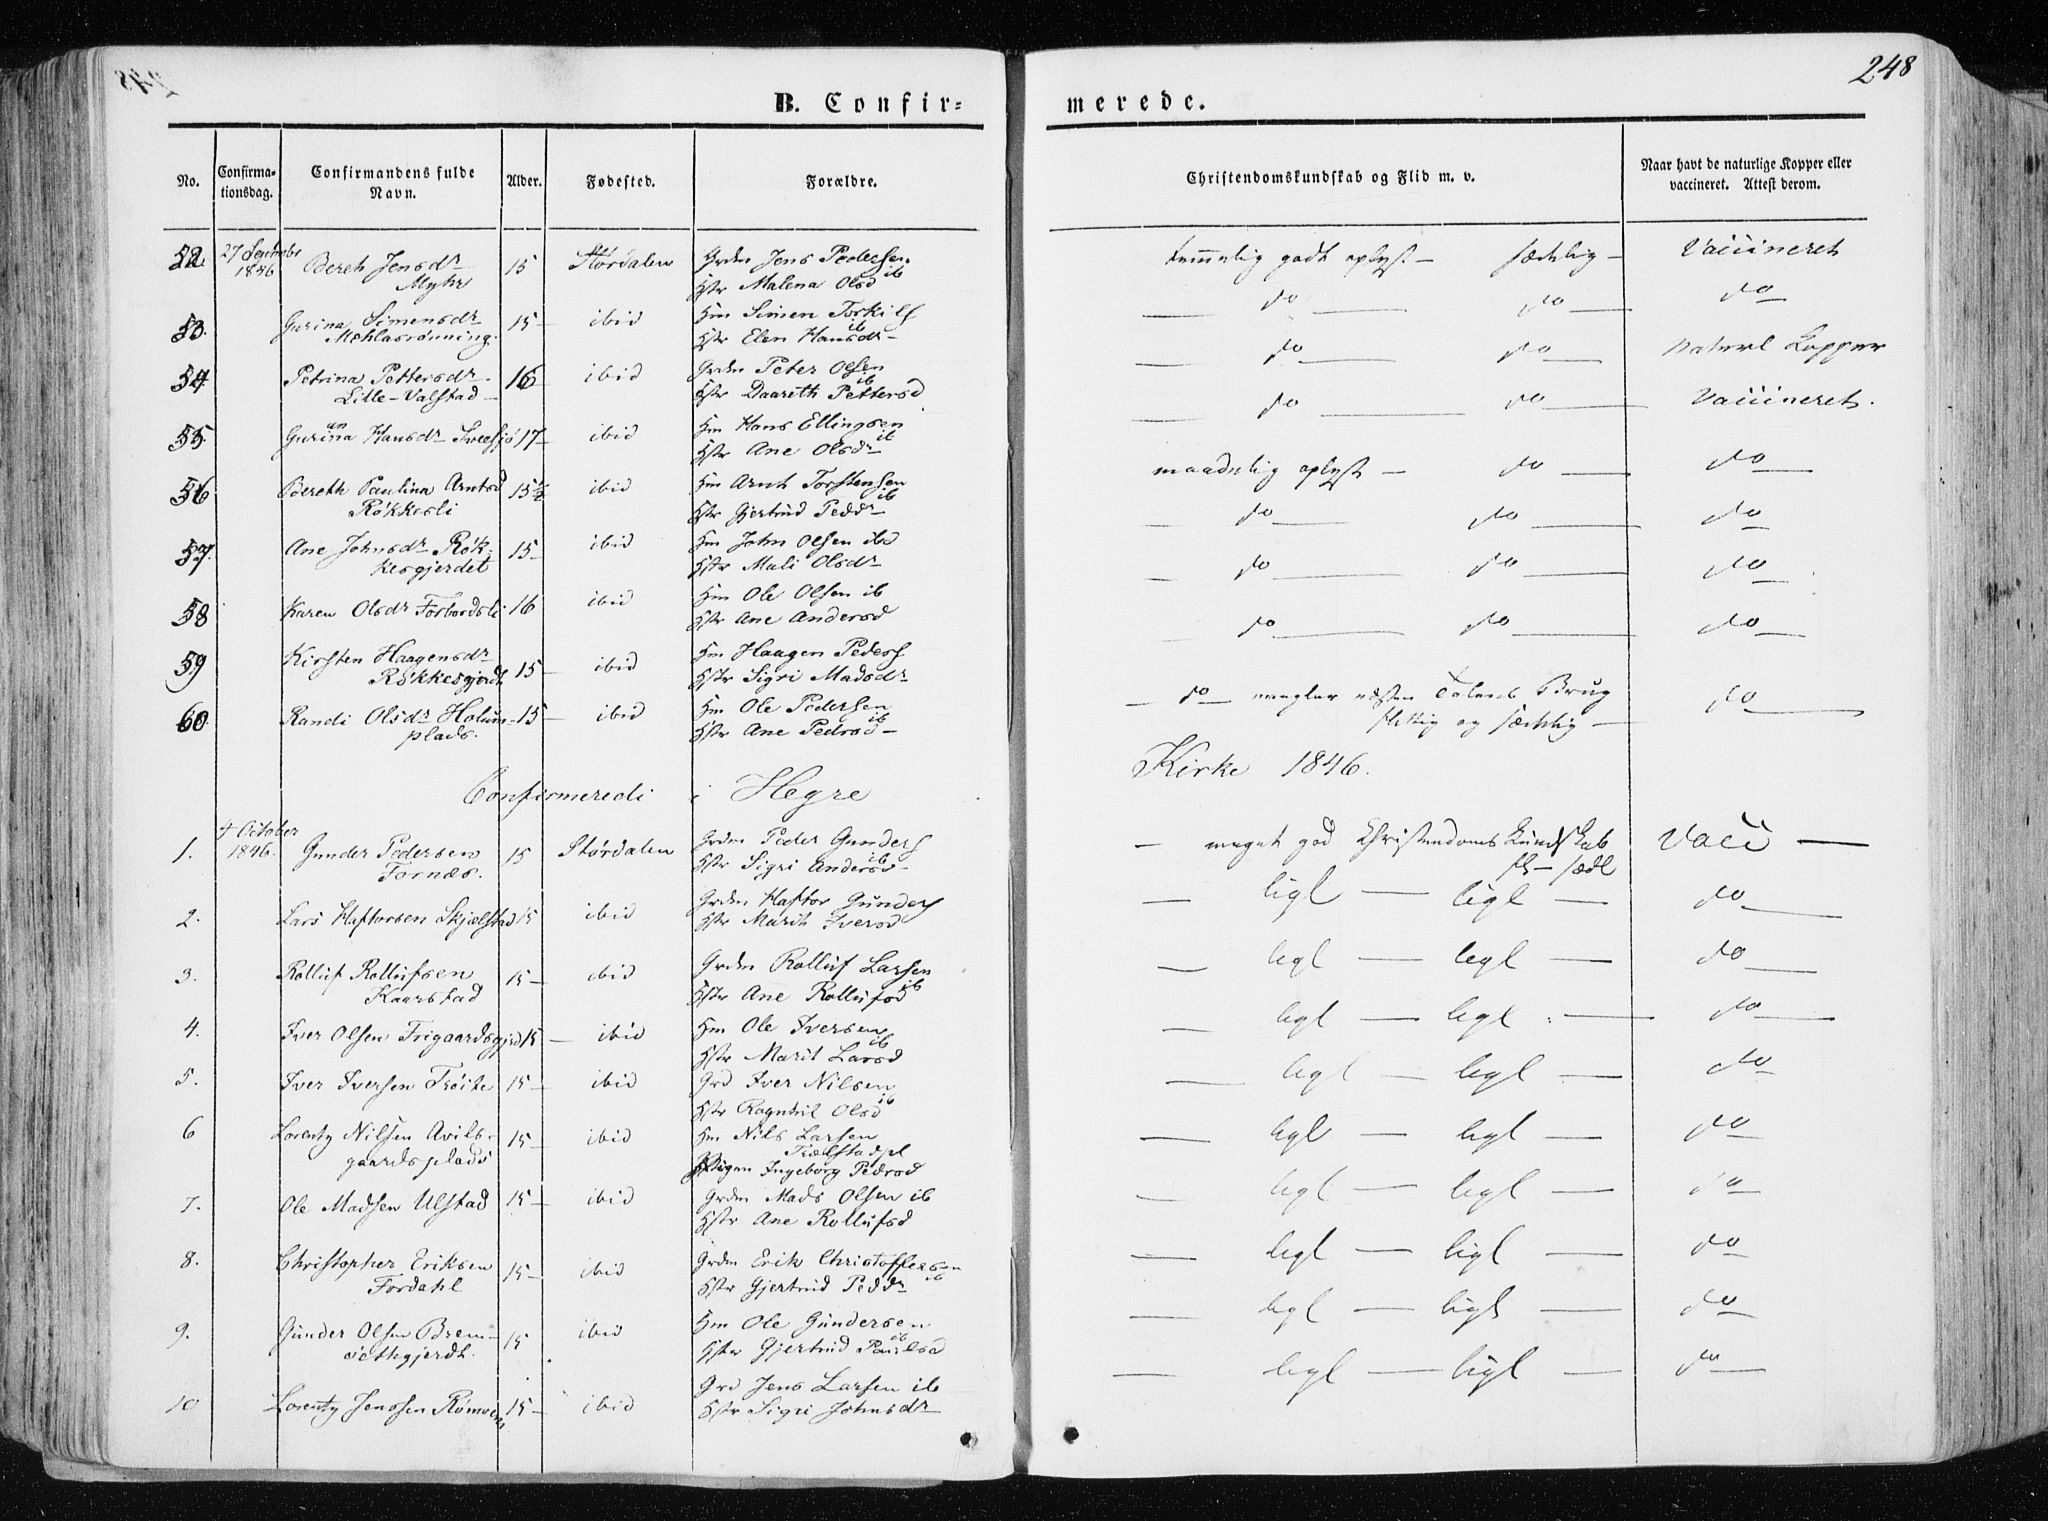 248
B. Confir=
merede.
No.
Confirma-
tionsdag.
Confirmandens fulde
Navn.
Alder.
Fødested.
Forældre.
Christendomskundskab og Flid m. v.
Naar havt de naturlige Kopper eller
vaccineret. Attest derom.
52. 27 Septmbr 1846 Bereth Jensdr Myhr 15 Størdalen Grdm Jens Pedersen
Hstr Malena Olsd ib
temmelig godt oplyst — sædelig — Vaccineret
53. Gurina Simensdr Mæhlasrønning 15 — ibid Hm Simen Torkils
Hstr Elen Hansdr ib
do — do — do
54. Petrina Pettersdr Lille-Valstad 16 ibid Grdm Peter Olsen
Hstr Daareth Pettersd ib
do — do — naturl Kopper
55 Gurina Hansdr 17 — ibid Hm Hans Ellingsen
Hstr Ane Olsdr ib
do — do — Vaccineret.
56. Bereth Paulina Arntsd Røkkesli 15½ ibid Hm Arnt Torstensen
Hstr Gjertrud Peddr ib
maadelig oplyst — do — do
57. Ane Johnsdr Røk-
kesgjerdet 15 — ibid Hm John Olsen ibd
Hstr Mali Olsdr
do — do — do
58 Karen Olsdr Forbordsli 16 ibid Hm Ole Olsen ib
Hstr Ane Andersd
do — do — do
59 Kirsten Haagensdr Røkkesgjerdt 15 — ibid Hm Haagen Peders
Hstr Sigri Madsdr
do — do — do
60. Randi Olsdr Holum-
plads. 15 — ibid Hm Ole Pedersen
Hstr Ane Pedersd ib
— do — mangler næsten Talens Brug
flittig og sædelig — do
Confirmerede i Hegre
Kirke 1846.
1. 4 October 1846. Gunder Pedersen Fornæs. 15 Størdalen Grdm Peder Gunders
Hstr Sigri Andersd ib
— meget god Christendoms Kundskab
fl — sædl Vacc —
2. Lars Haftorsen Skjelstad 15 ibid Grdm Haftor Gunders
Hstr Marit Iversd
— ligl — ligl — do
3. Rolluf Rollufsen Kaarstad 15 — ibid Grdm Rolluf Larsen
Hstr Ane Rollufsd ib
— ligl — ligl — do
4. Iver Olsen Frigaardsgjrd 15 — ibid Hm Ole Iversen
Hstr Marit Larsd ib
— ligl — ligl — do
5. Iver Iversen Trøite 15 — ibid Grd Iver Nilsen
Hstr Ragnhil Olsd ib
— ligl — ligl — do
6 Lorentz Nilsen Avils-
gaardsplads 15 — ibid Hm Nils Larsen
Trælstadpl
Pigen Ingeborg Pedrsd
— ligl — ligl — do
7. Ole Madsen Ulstad 15 — ibid Grdm Mads Olsen ib
Hstr Ane Rollufsd
— ligl — ligl — do
8. Christopher Eriksen Fordahl 15 — ibid Grdm Erik Christoffersen
Hstr Gjertrud Peddr ib
— ligl — ligl — do
9. Gunder Olsen Brem-
sethgjerdt. 15 ibid Hm Ole Gundersen
Hstr Gjertrud Paulsd ib
— ligl — ligl — do
10 Lorentz Jenssen 15 — ibid Grd Jens Larsen ib
Hstr Sigri Johnsdr
— ligl — ligl — do